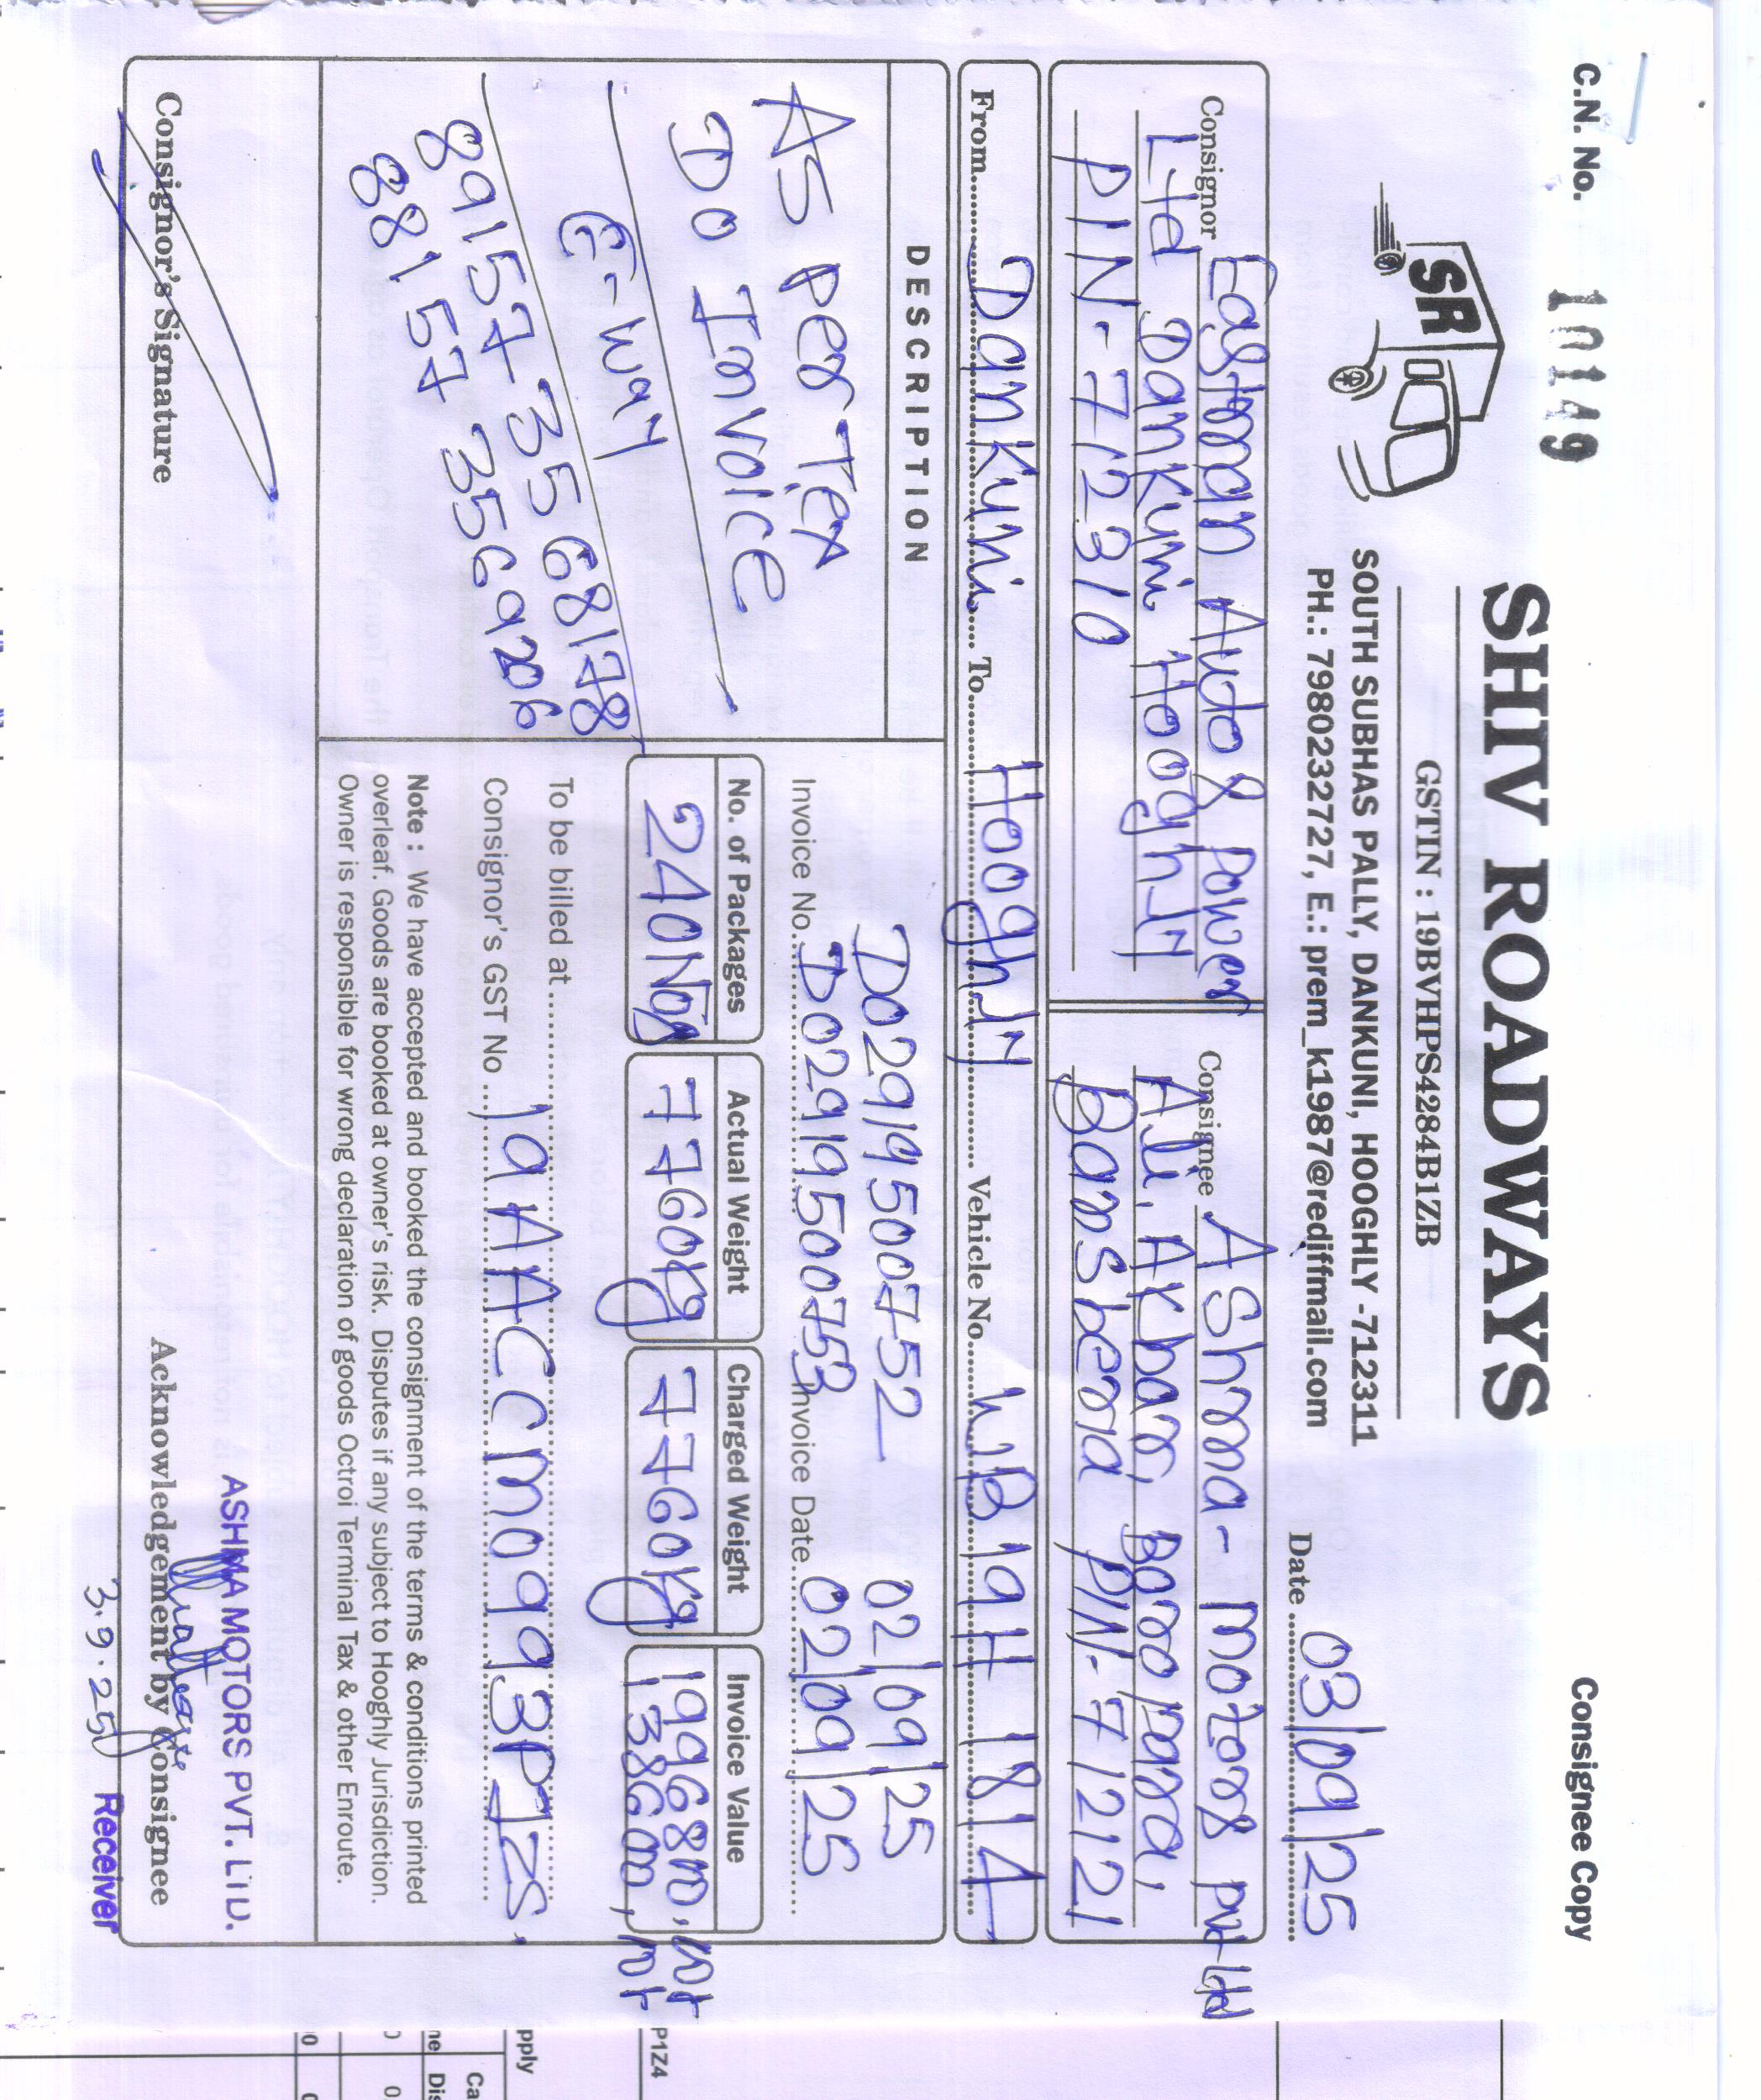 C.N. No. 10149
Consignee Copy
SR
SHIV ROADWAYS
GSTIN : 19BVHPS4284B1ZB
SOUTH SUBHAS PALLY, DANKUNI, HOOGHLY -712311
PH.: 7980232727, E.: prem_k1987@rediffmail.com
Date 03/09/25
Consignor Eastman Auto & Power
Ltd Dankuni Hooghly
PIN-712310
Consignee Ashma- Motors Pvt-Ltd
Ali, Akbar, Baropara,
Bansberia PIN-712121
From Dankuni To Hooghly Vehicle No. WB 19H 1814
DESCRIPTION
As Per Tex
DO Invoice
E-Way
89157 3568178
88157 3569206
DO2919500752 02/09/25
Invoice No. DO2919500753 Invoice Date 02/09/25
No. of Packages Actual Weight Charged Weight Invoice Value
240Nos 7760Kg 7760Kg 1996800,
138600,
To be billed at
Consignor's GST No 19AACCM0993P1ZS,
Note : We have accepted and booked the consignment of the terms & conditions printed
overleaf. Goods are booked at owner's risk. Disputes if any subject to Hooghly Jurisdiction.
Owner is responsible for wrong declaration of goods Octroi Terminal Tax & other Enroute.
ASHMA MOTORS PVT. LTD.
Consignor's Signature
Acknowledgement by Consignee
3.9.25
Receiver
P1Z4
pply
Ca
ne Dis
0 0
0 0